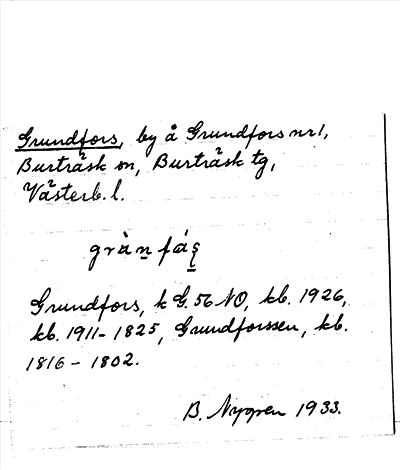 Grundfors, by å Grundfors nr 1,
Burträsk sn, Burträsk tg,
Västerb. l.
grànfáş
Grundfors, k G. 56 NO, kb. 1926,
kb. 1911-1825, Grundforssen, kb.
1816-1802.
B. Nygren 1933.